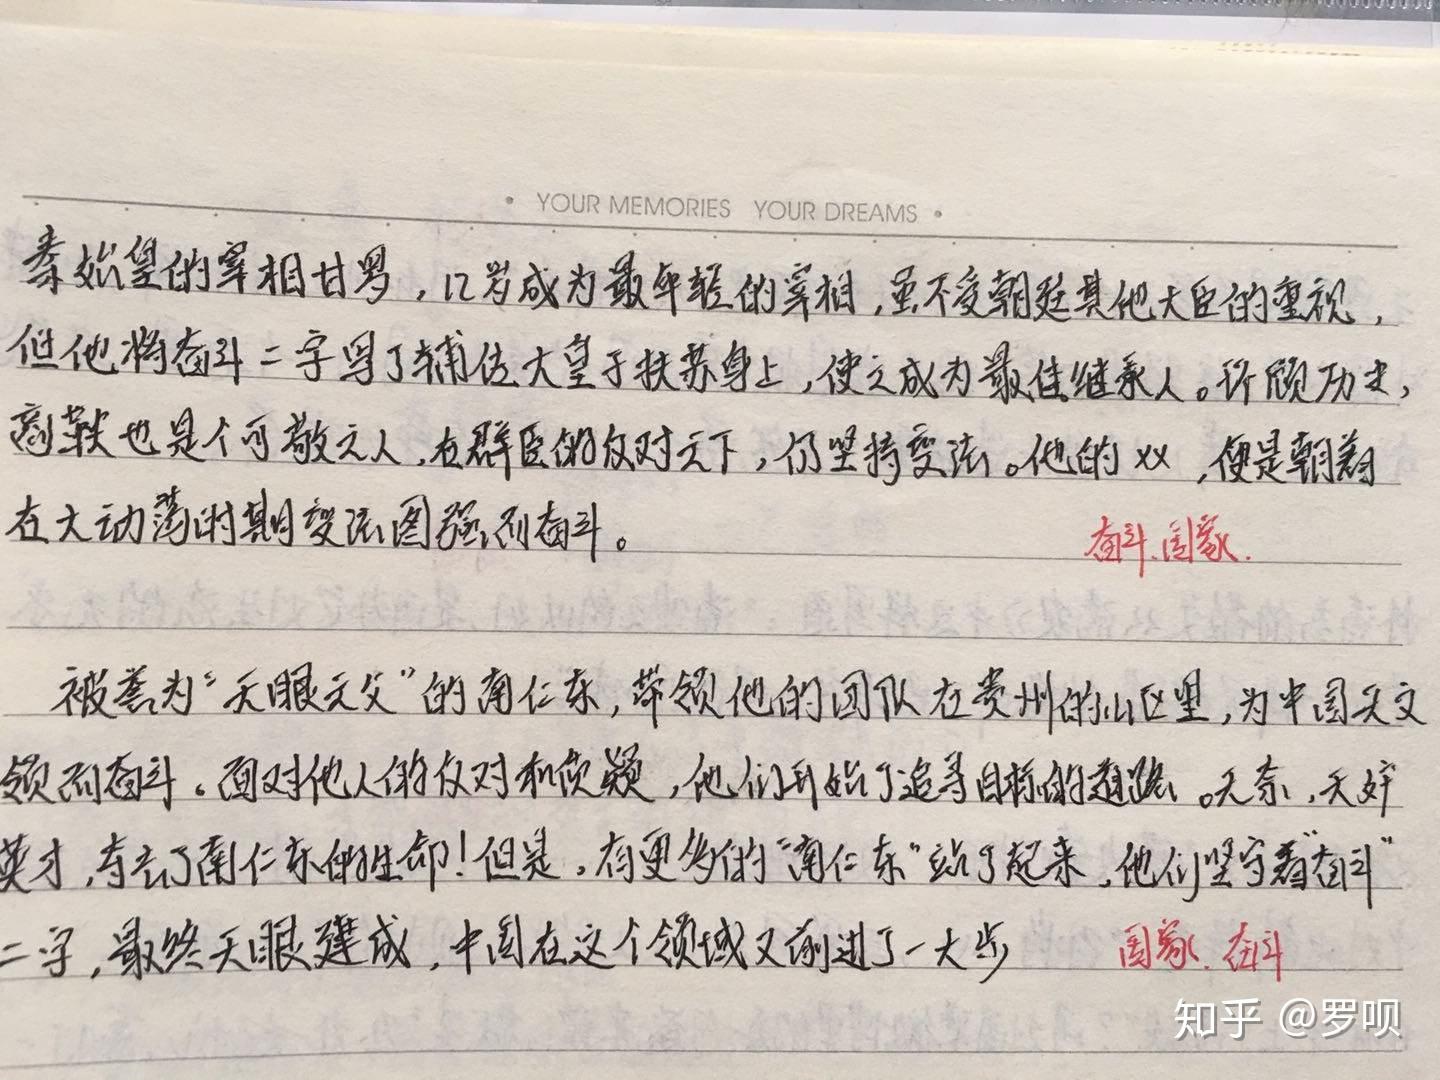 YOUR MEMORIES YOUR DREAMS
秦始皇的宰相甘罗，12岁成为最年轻的宰相，虽不受朝廷其他大臣的重视，
但他将奋斗二字写了辅佐大皇子扶苏身上，使之成为最佳继承人。回顾历史，
商鞅也是个可敬之人，在群臣的反对之下，仍坚持变法。他的xx，便是朝着
在大动荡时期变法图强而奋斗。
奋斗.国家.
被誉为“天眼之父”的南仁东，带领他的团队在贵州的山区里，为中国天文
领而奋斗。面对他人的反对和质疑，他们开始了追寻目标的道路。无奈，天妒
英才，夺去了南仁东的生命！但是，有更多的“南仁东”站了起来，他们坚守着“奋斗”
二字，最终天眼建成，中国在这个领域又前进了一大步
国家.奋斗
知乎 @罗呗